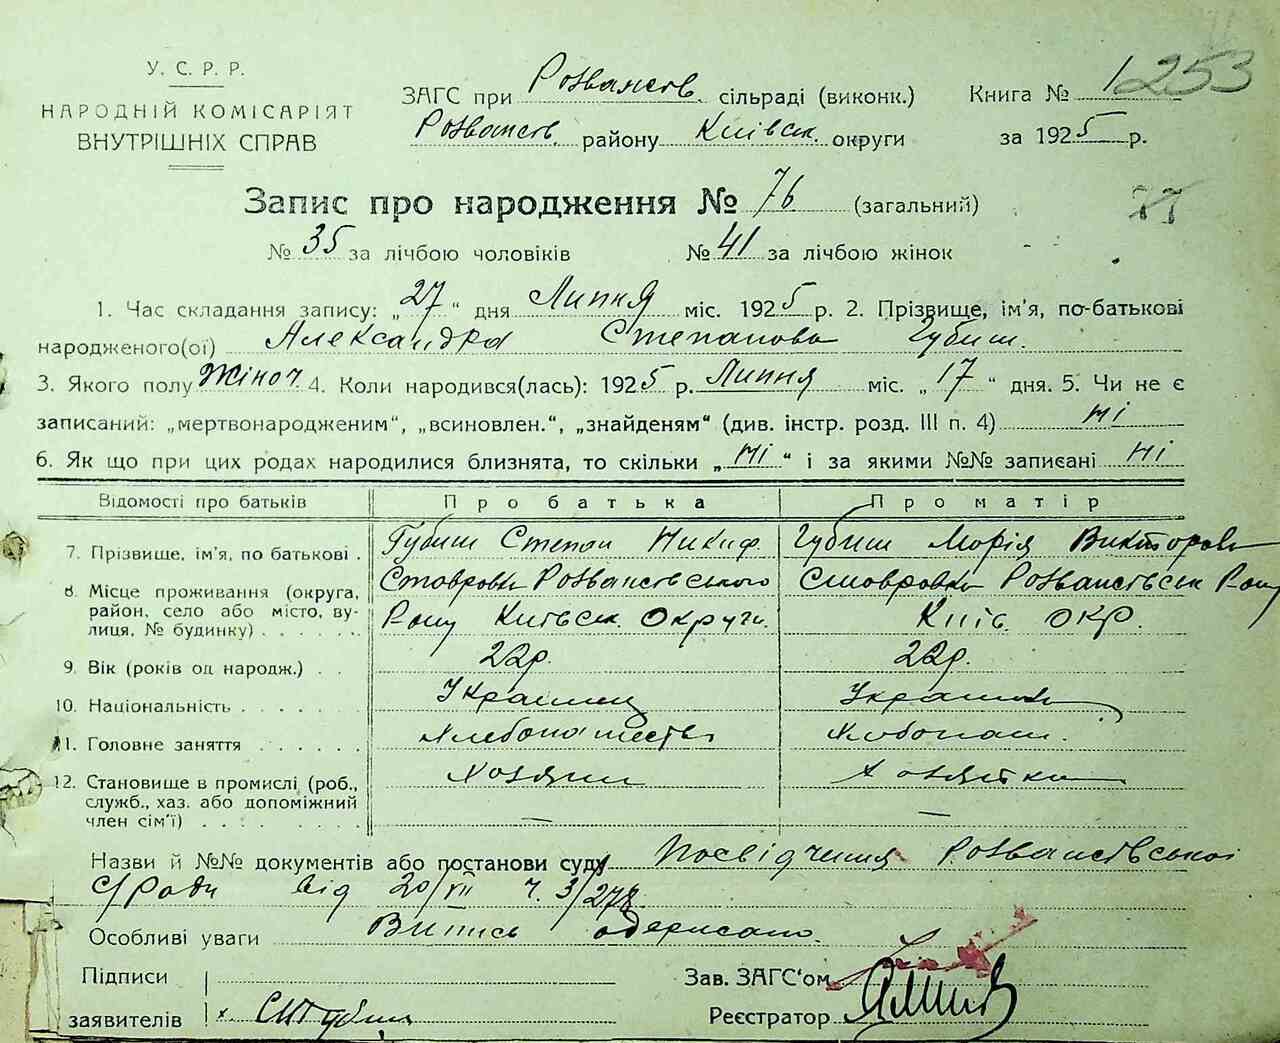 У. С. Р. Р.
НАРОДНІЙ КОМІСАРІЯТ
ВНУТРІШНІХ СПРАВ
ЗАГС при Розважів. сільраді (виконк.) Книга № 1 253
Розважів. району Київськ. округи за 1925 р.
Запис про народження № 76 (загальний) 77
№ 35 за лічбою чоловіків № 41 за лічбою жінок
1. Час складання запису: „27“ дня Липня міс. 1925 р. 2. Прізвище, ім'я, по-батькові
народженого(ої) Александра Степанова Губиш.
3. Якого полу Жіноч. 4. Коли народився(лась): 1925 р. Липня міс. „17“ дня. 5. Чи не є
записаний: „мертвонародженим“, „всиновлен.“, „знайденям“ (див. інстр. розд. III п. 4) ні
6. Як що при цих родах народилися близнята, то скільки „ні“ і за якими №№ записані ні
Відомості про батьків Про батька Про матір
7. Прізвище, ім'я, по батькові . Губиш Степан Никиф. Губиш Марія Викторова
8. Місце проживання (округа, район, село або місто, вулиця, № будинку) Ставровка Розважівського Ставровка Розважівськ Рону
Рону Київськ. Округи. Київ. окр.
9. Вік (років од народж.) . . 22р. 22р.
10. Національність . . . . . . Украинец Украинка
11. Головне заняття . . . . . . Хлебопашество Хлебопаш.
12. Становище в промислі (роб., служб., хаз. або допоміжний член сім'ї) . . . . . . . Хозяин Хозяйка
— —
Назви й №№ документів або постанови суду Посвідчення Розважівської
с/ради від 20/VII ч. 3/278.
Особливі уваги Випись одержано.
Підписи Зав. ЗАГС'ом
заявителів х. Губиш Реєстратор